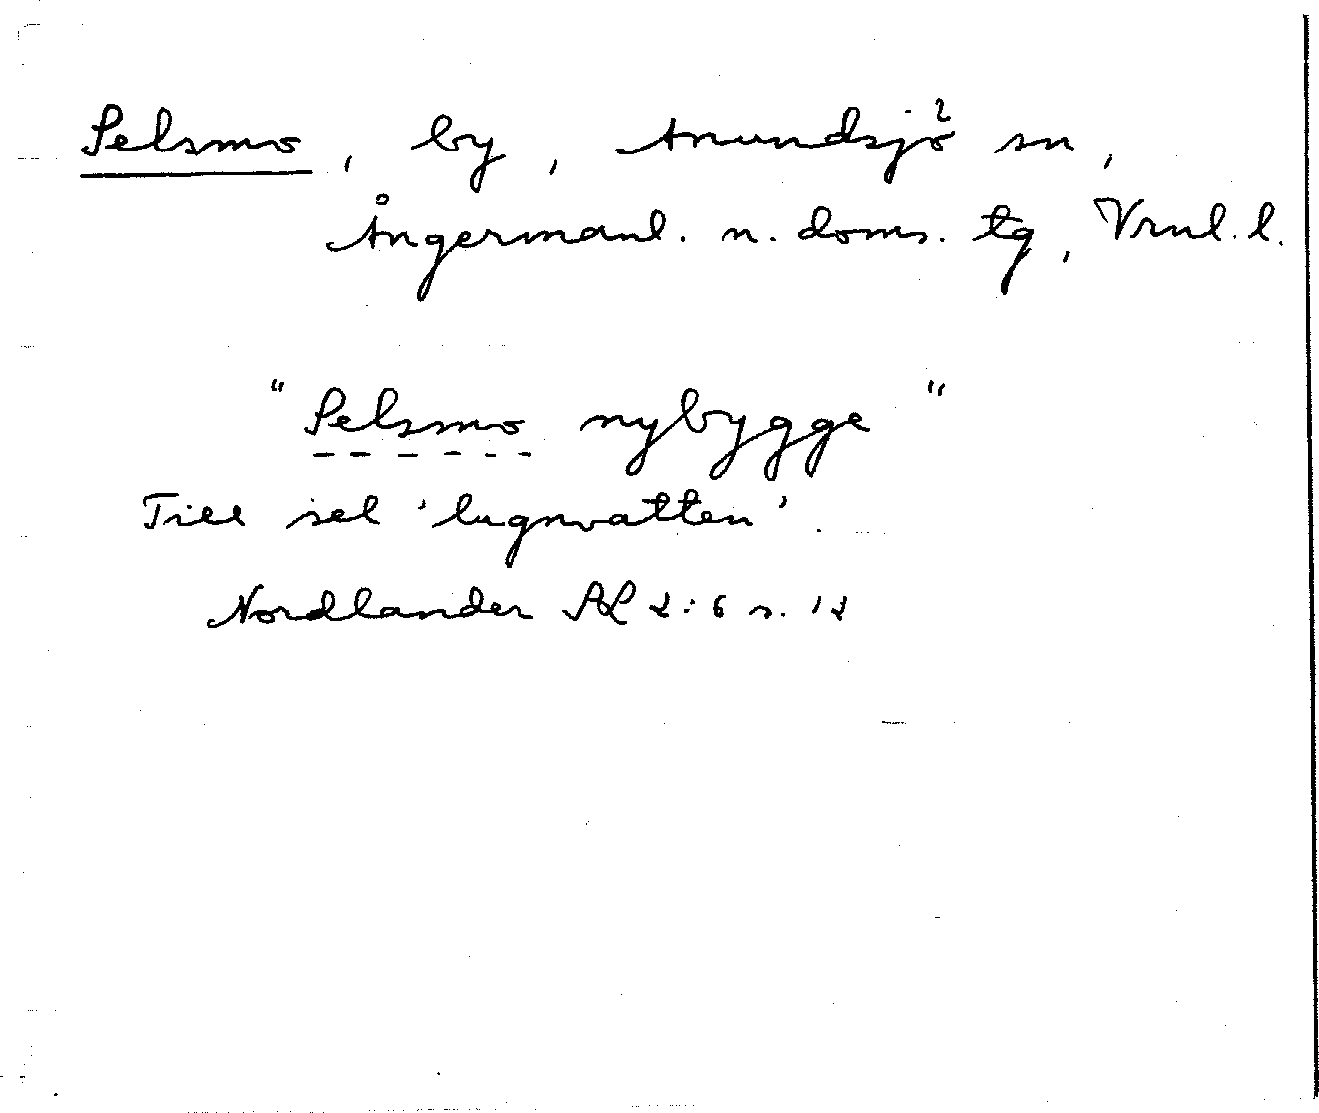 Selsmo, by, Anundsjö sn,
Ångermanl. n. doms. tg, Vrnl. l.
"Selsmo nybygge"
Till sel 'lugnvatten'.
Nordlander NS 2:6 s. 12